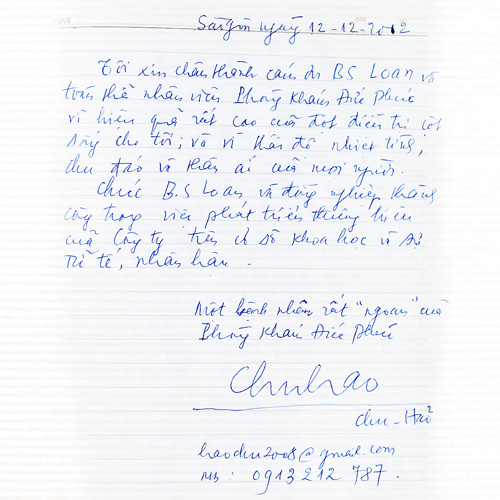 Saigon ngày 12-12-2012
Tôi xin chân thành cám ơn BS Loan và
toàn thể nhân viên Phòng Khám Đức Phúc
vì hiệu quả rất cao của đợt điều trị cột
sống cho tôi; và vì thái độ nhiệt tình,
chu đáo và thân ái của mọi người.
Chúc B.S Loan và đồng nghiệp thành
công trong việc phát triển thương hiệu
của Công ty trên cơ sở khoa học và sự
tử tế, nhân hậu.
Một bệnh nhân rất "ngoan" của
Phòng Khám Đức Phúc
Chuhao
Chu-Hảo
haochu2008@gmail.com
Mb: 0913 212 787.